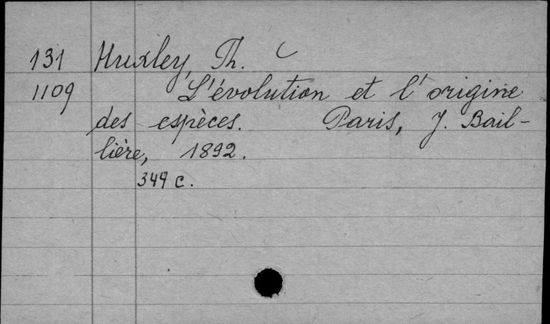 131 Huxley, Th.
1109 L'évolution et l'origine
des espèces. Paris, J. Bail-
lière, 1892.
349 c.